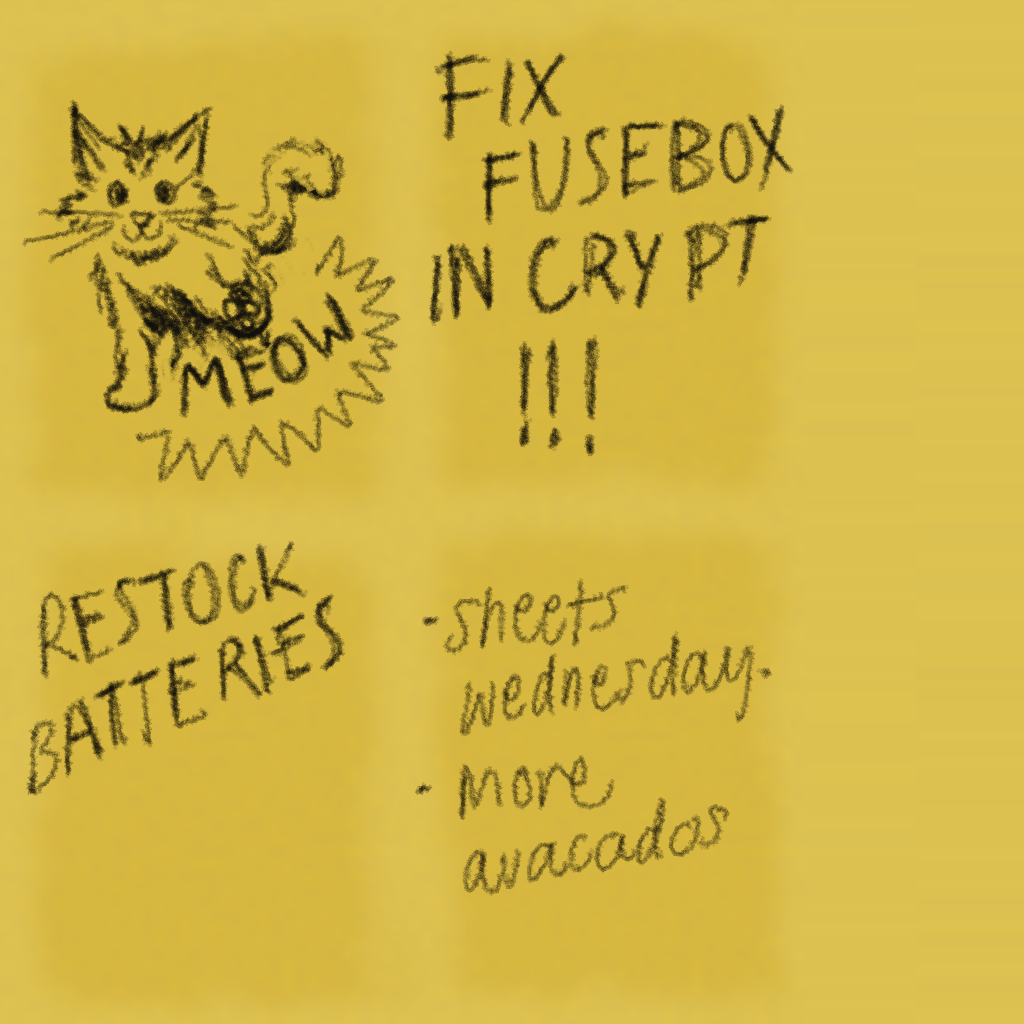 MEOW
FIX
FUSEBOX
IN CRYPT
!!!
RESTOCK
BATTERIES
- sheets
wednesday.
- more
avacados